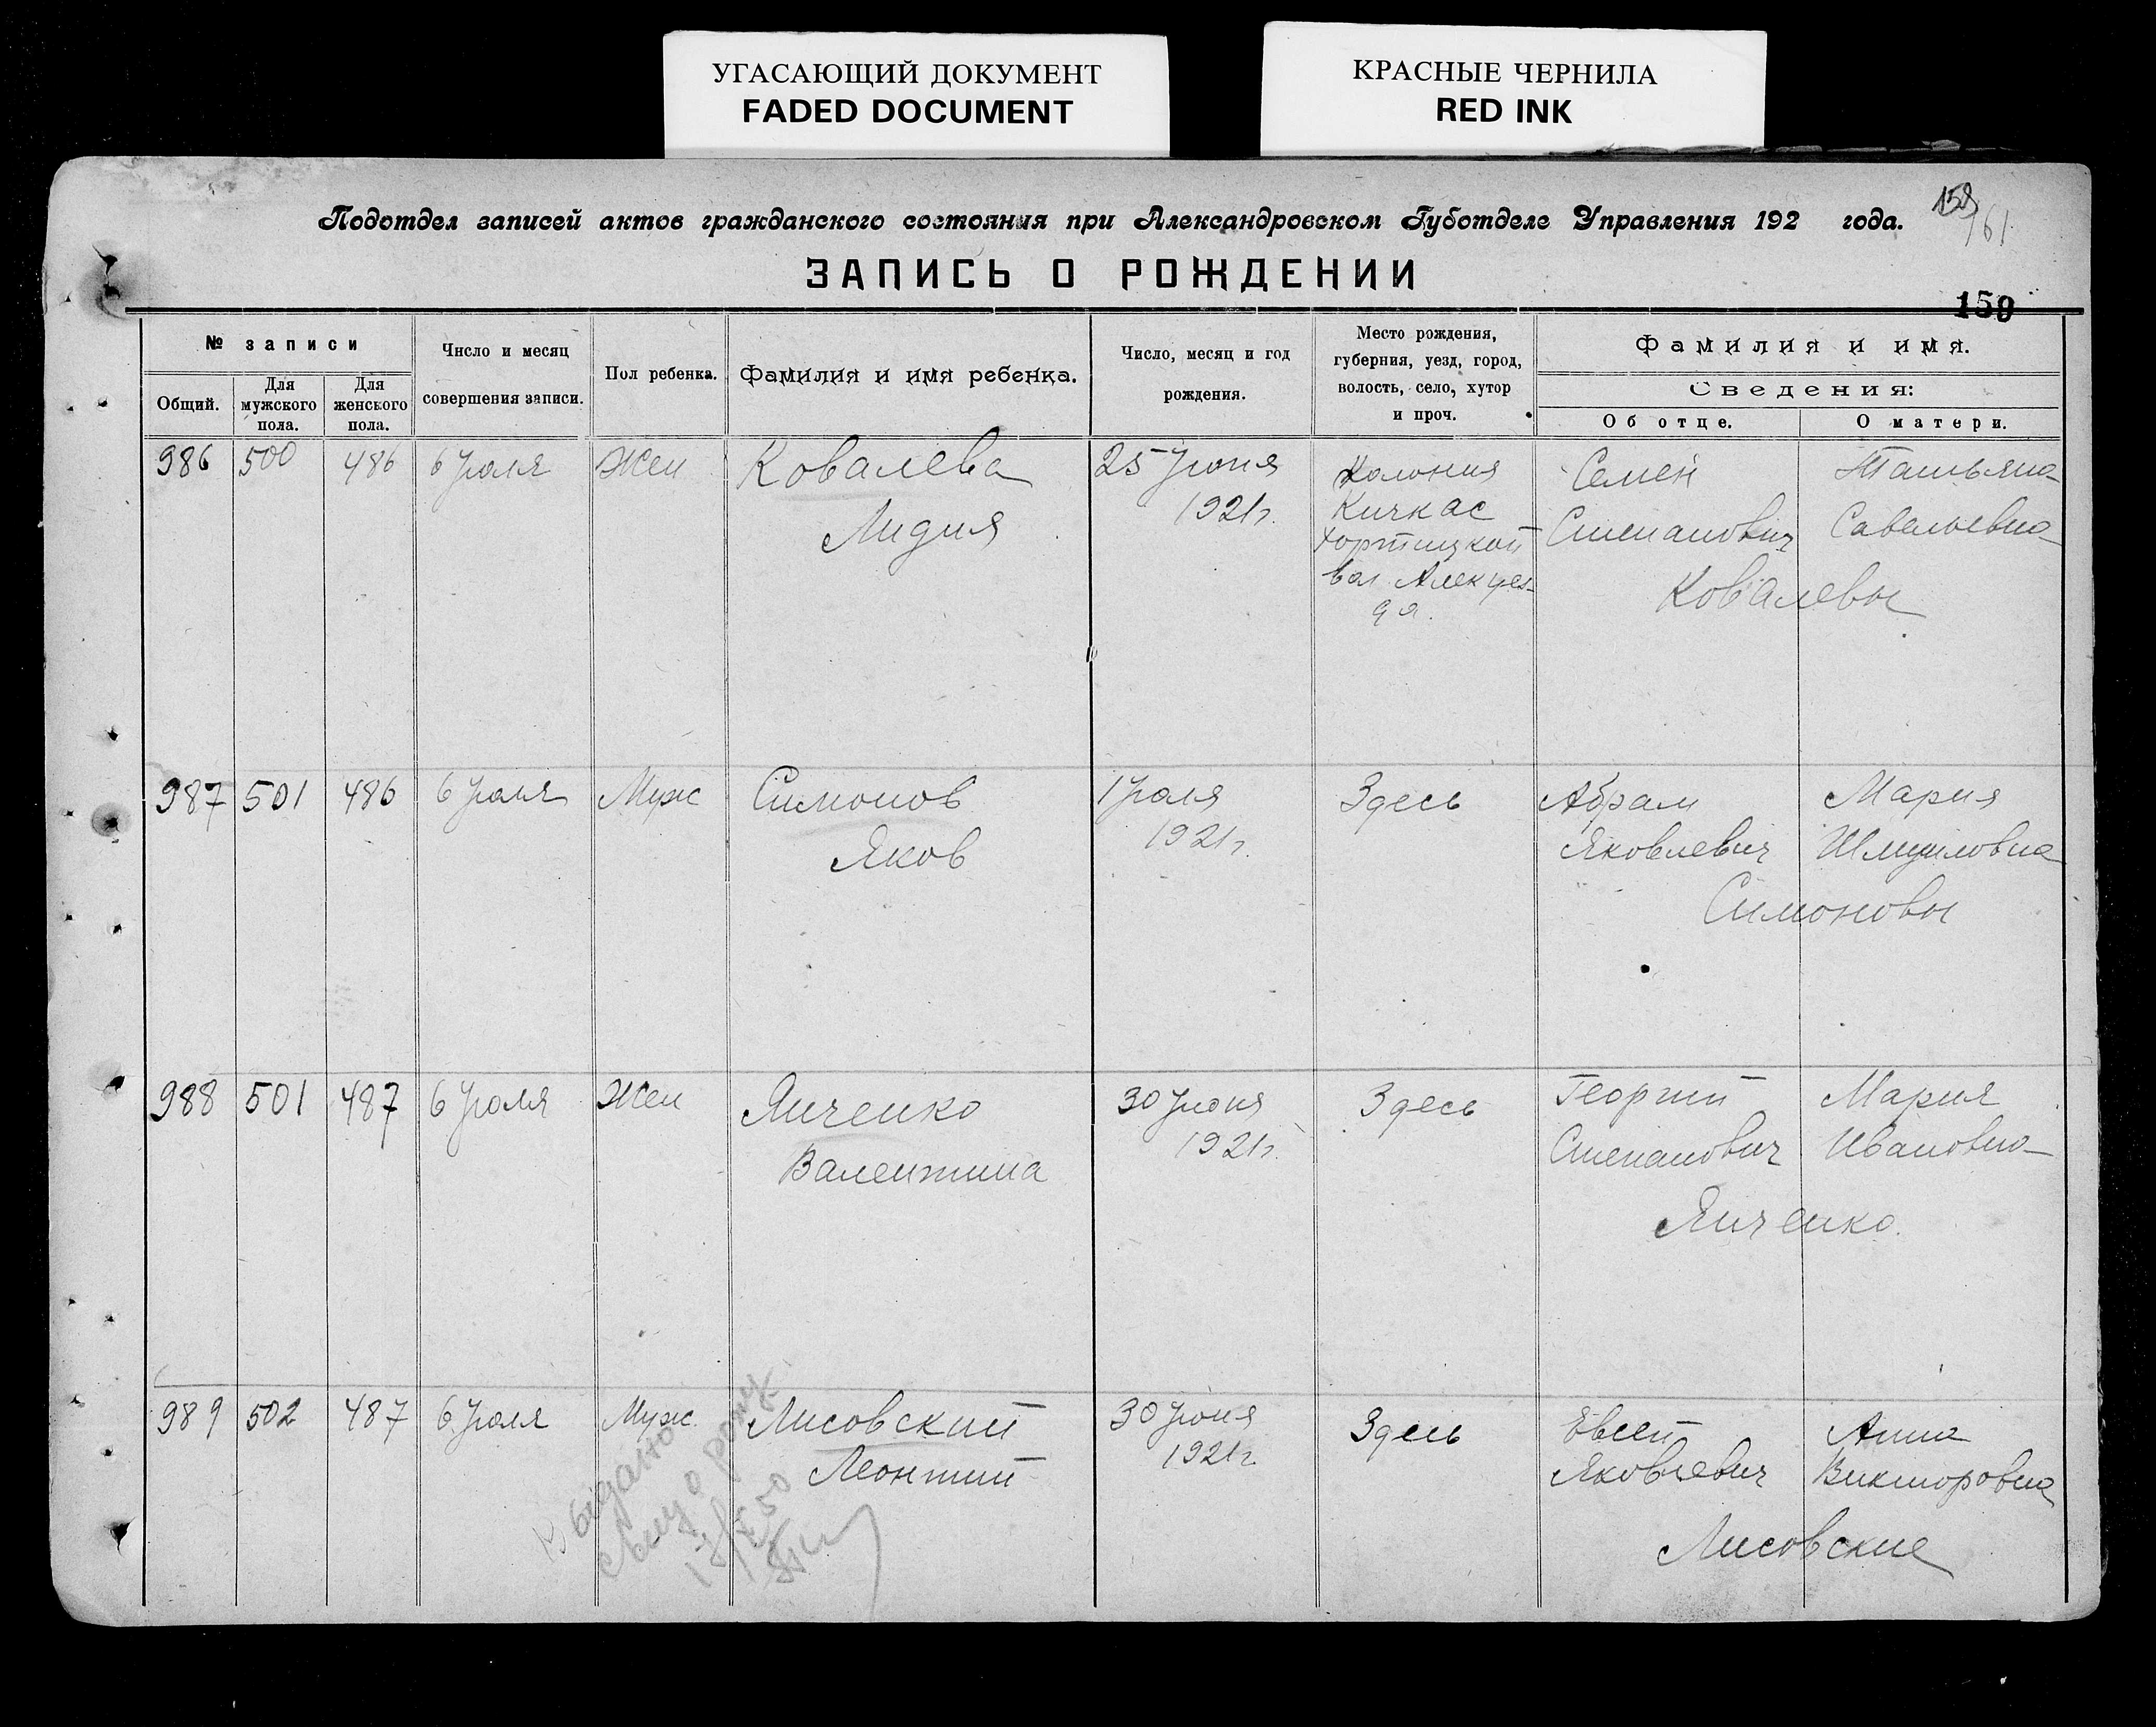 УГАСАЮЩИЙ ДОКУМЕНТ
FADED DOCUMENT
КРАСНЫЕ ЧЕРНИЛА
RED INK
Подотдел записей актов гражданского состояния при Александровском Губотделе Управления 192 года.
158
161
ЗАПИСЬ О РОЖДЕНИИ
159
№ записи
Общий.
Для мужского пола.
Для женского пола.
Число и месяц совершения записи.
Пол ребенка.
Фамилия и имя ребенка.
Число, месяц и год рождения.
Место рождения, губерния, уезд, город, волость, село, хутор и проч.
Фамилия и имя.
Сведения:
Об отце.
О матери.
986 500 486 6 Июля Жен Ковалева 25 Июня Колония Семен Татьяна
Лидия 1921г. Кичкас Степанович Савельевна
Хортицкой
вол. Алек уез- Ковалевы
да.
987 501 486 6 Июля Муж Симонов 1 Июля Здесь Абрам Мария
Яков 1921г. Яковлевич Шмуиловна
Симоновы
988 501 487 6 Июля Жен Янченко 30 Июня Здесь Георгий Мария
Валентина 1921г. Степанович Ивановна
Янченко.
989 502 487 6 Июля Муж. Лисовский 30 Июня Здесь Евсей Анна
Леонтий 1921г. Яковлевич Викторовна
Лисовские
выдано